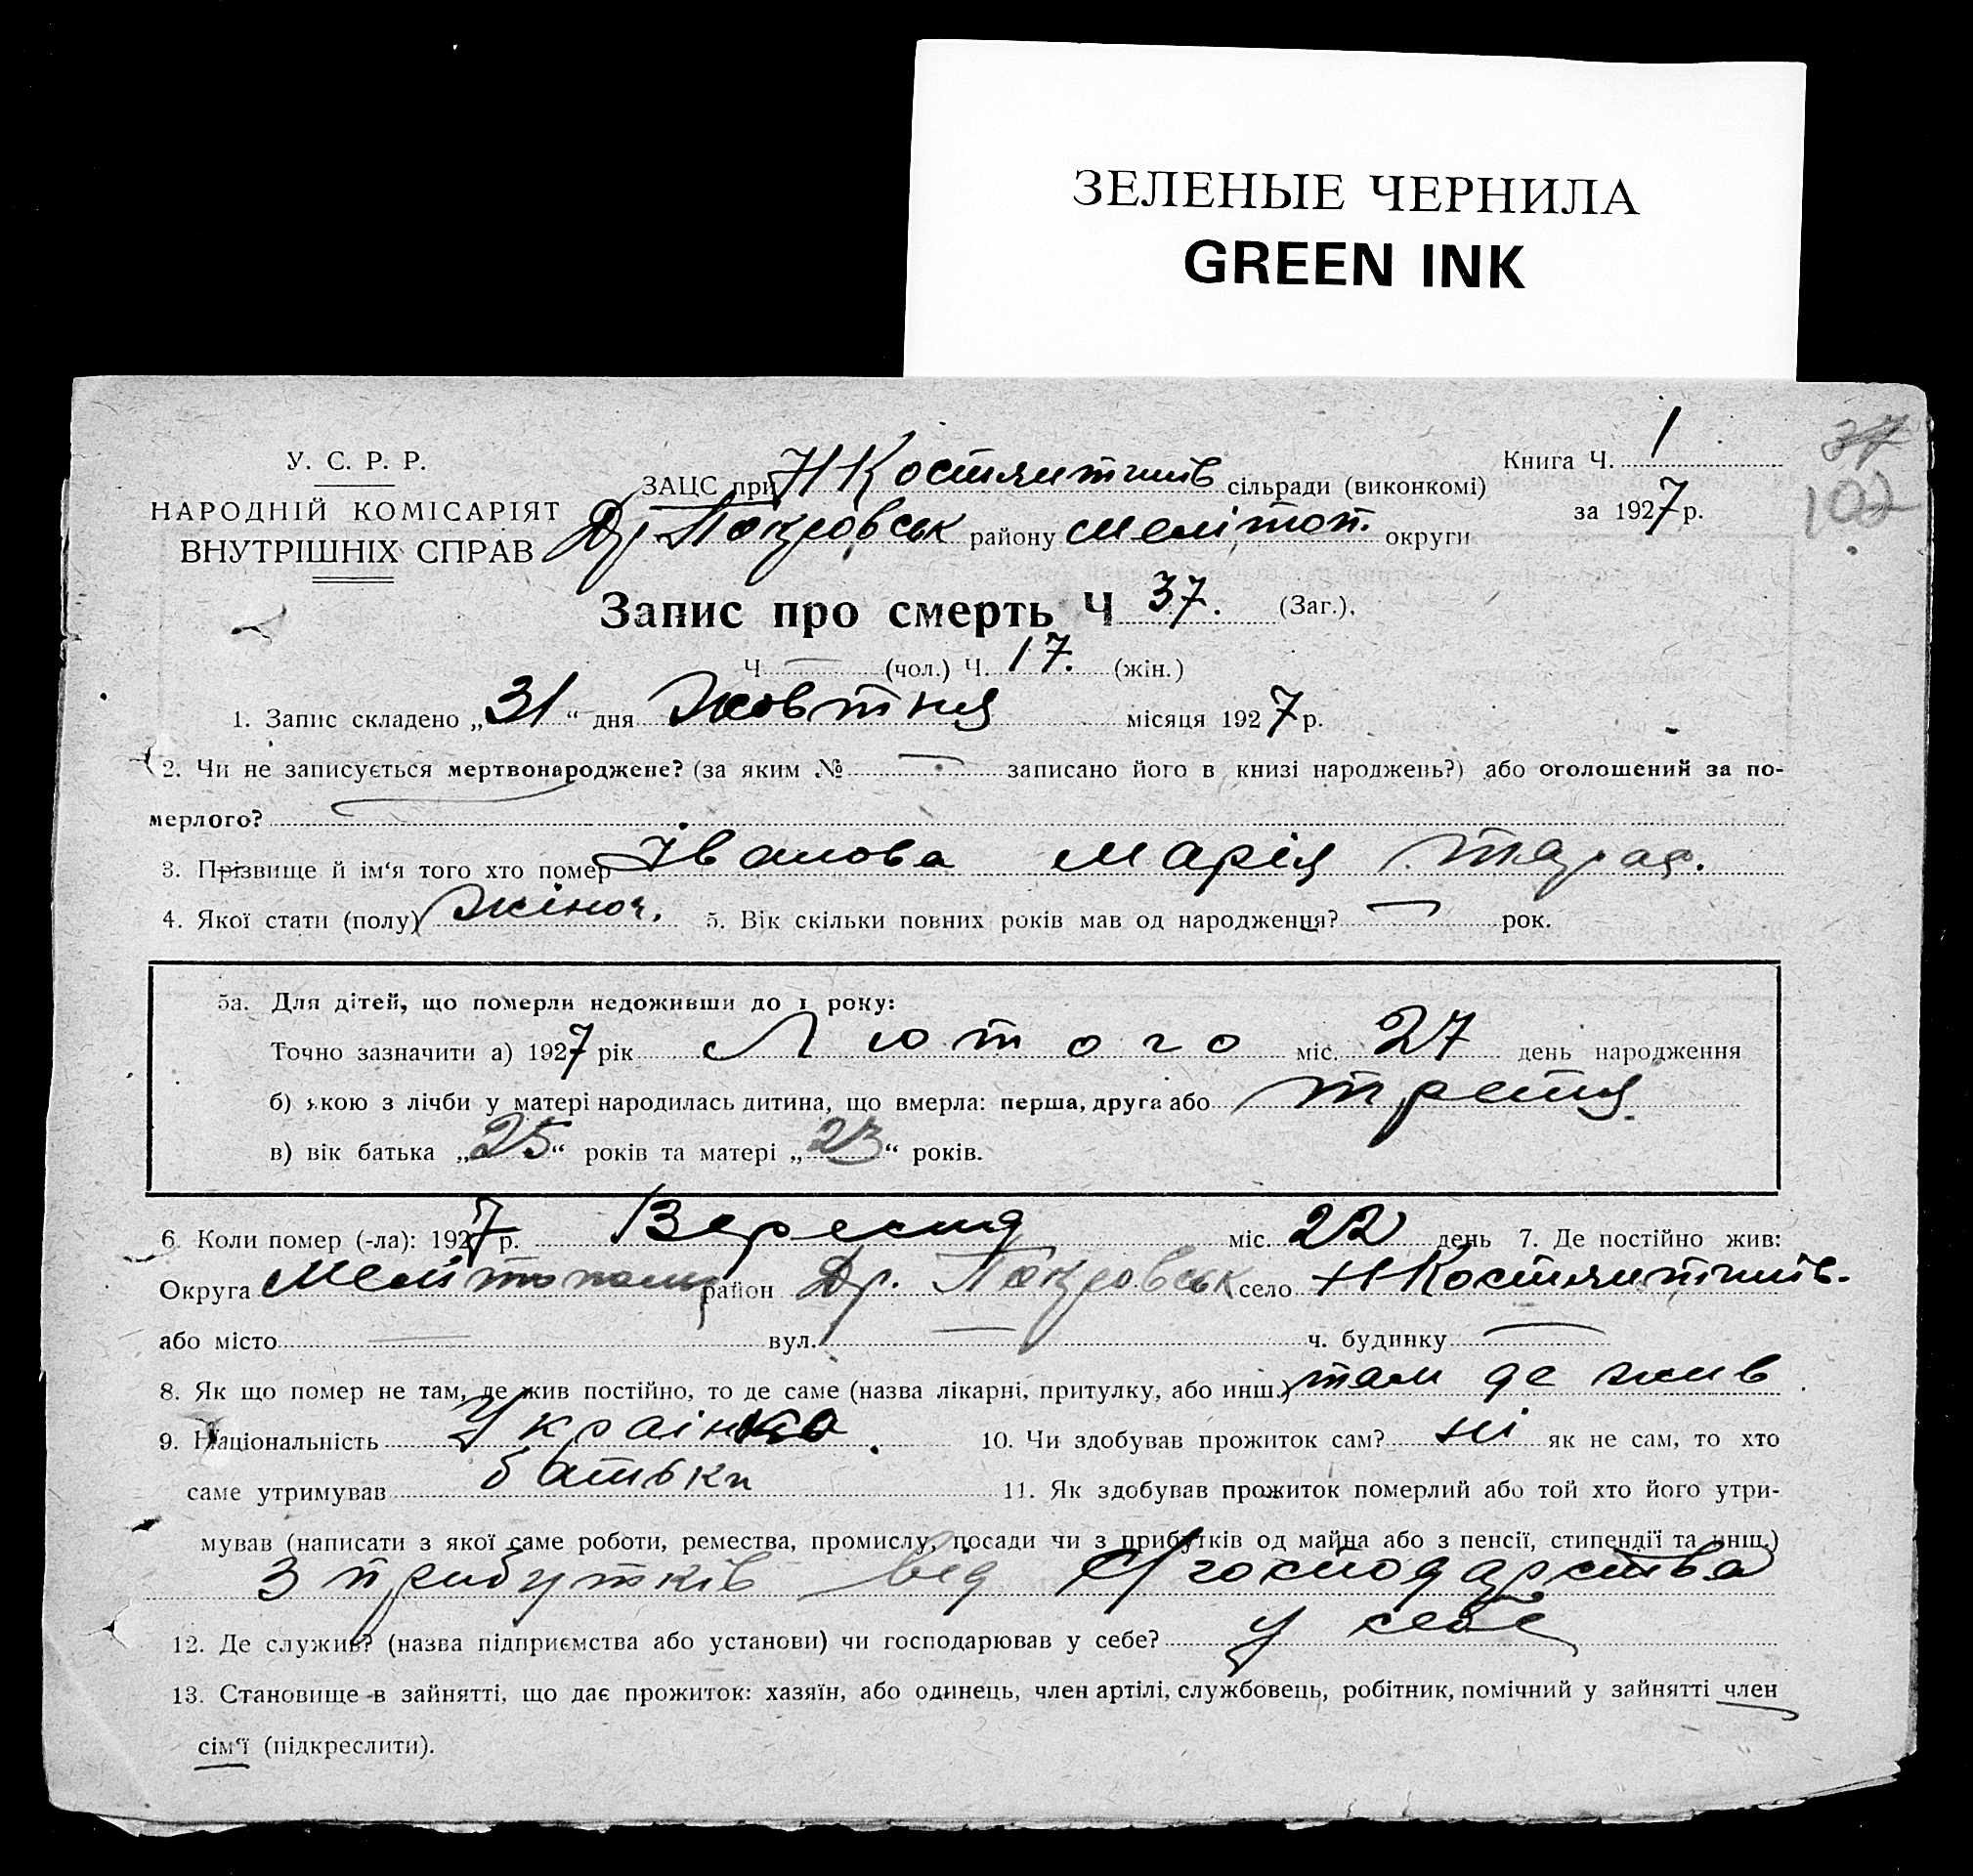 ЗЕЛЕНЫЕ ЧЕРНИЛА
GREEN INK
У. С. Р. Р.
НАРОДНІЙ КОМІСАРІЯТ
ВНУТРІШНІХ СПРАВ
ЗАЦС при Н Костянтинів сільради (виконкомі)
Др. Покровськ району Мелітоп. округи
Книга Ч. 1
за 1927 р.
37
102
Запис про смерть Ч 37. (Заг.).
Ч. — (чол.) Ч. 17. (жін.)
1. Запис складено „31“ дня Жовтня місяця 1927 р.
2. Чи не записується мертвонароджене? (за яким № — записано його в книзі народжень?) або оголошений за по-
мерлого?
3. Прізвище й ім‘я того хто помер Іванова Марія Тарас.
4. Якої стати (полу) Жіноч. 5. Вік скільки повних років мав од народження? — рок.
5а. Для дітей, що померли недоживши до 1 року:
Точно зазначити а) 1927 рік Лютого міс. 27 день народження
б) якою з лічби у матері народилась дитина, що вмерла: перша, друга або третя.
в) вік батька „25“ років та матері „23“ років.
6. Коли помер (-ла): 1927 р. Вересня міс. 22 день 7. Де постійно жив:
Округа Мелітополь район Др. Покровськ село Н Костянтинів.
або місто — вул. — ч. будинку —
8. Як що помер не там, де жив постійно, то де саме (назва лікарні, притулку, або инш.) там де жив
9. Національність Украінка. 10. Чи здобував прожиток сам? ні як не сам, то хто
саме утримував батьки 11. Як здобував прожиток померлий або той хто його утри-
мував (написати з якої саме роботи, ремества, промислу, посади чи з прибутків од майна або з пенсії, стипендії та инш.)
З прибутків від с/господарства
12. Де служив? (назва підприємства або установи) чи господарював у себе? у себе
13. Становище в зайнятті, що дає прожиток: хазяїн, або одинець, член артілі, службовець, робітник, помічний у зайнятті член
сім‘ї (підкреслити).